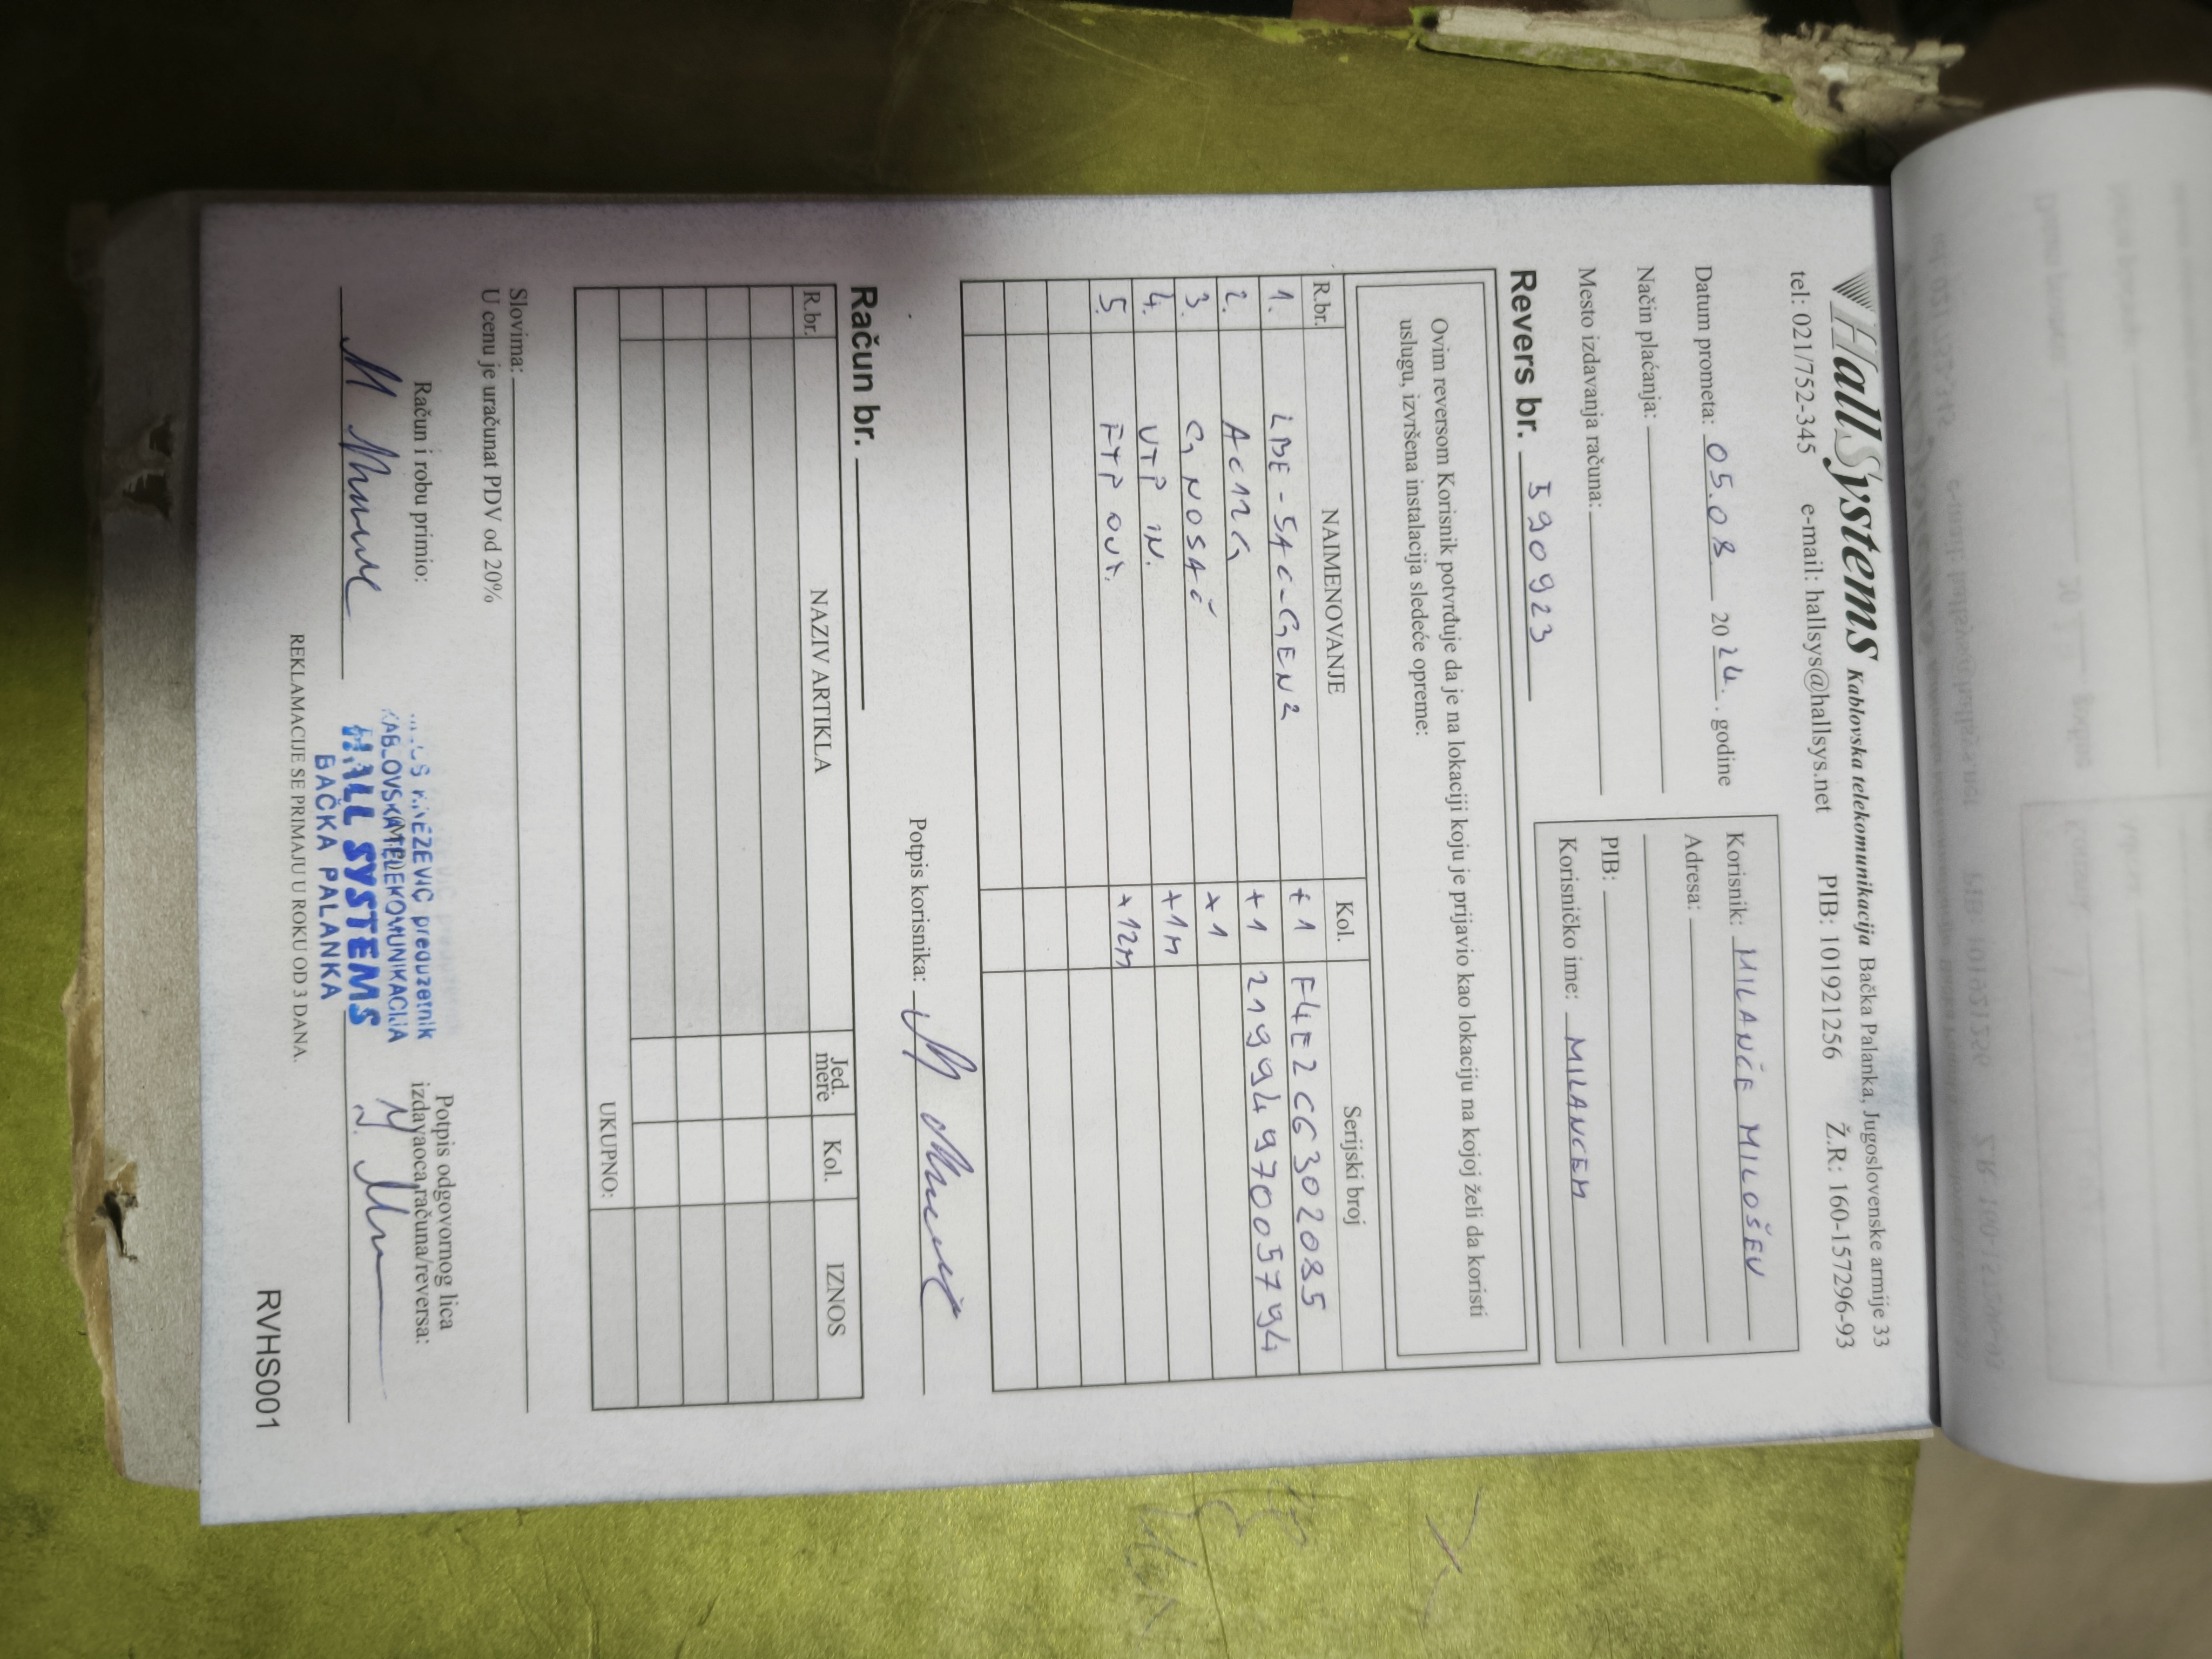 HallSystems Kablovska telekomunikacija Bačka Palanka, Jugoslovenske armije 33
tel: 021/752-345 e-mail: hallsys@hallsys.net PIB: 101921256 Ž.R: 160-157296-93
Datum prometa: 05.08 2024. godine
Način plaćanja:
Mesto izdavanja računa:
Korisnik: MILANČE MILOŠEV
Adresa:
PIB:
Korisničko ime: MILANCEM
Revers br. 590923
Ovim reversom Korisnik potvrđuje da je na lokaciji koju je prijavio kao lokaciju na kojoj želi da koristi
uslugu, izvršena instalacija sledeće opreme:
R.br. NAIMENOVANJE Kol. Serijski broj
1. LBE-5AC-GEN2 +1 F4E2C6302085
2. AC12G +1 2199497005794
3. G NOSAČ +1
4. UTP IN. +1M
5. FTP OUT. +12M
Potpis korisnika:
Račun br.
R.br. NAZIV ARTIKLA Jed. mere Kol. IZNOS
UKUPNO:
Slovima:
U cenu je uračunat PDV od 20%
Račun i robu primio:
Potpis odgovornog lica
izdavaoca računa/reversa:
preduzetnik
KABLOVSKA TELEKOMUNIKACIJA
HALL SYSTEMS
BAČKA PALANKA
REKLAMACIJE SE PRIMAJU U ROKU OD 3 DANA.
RVHS001